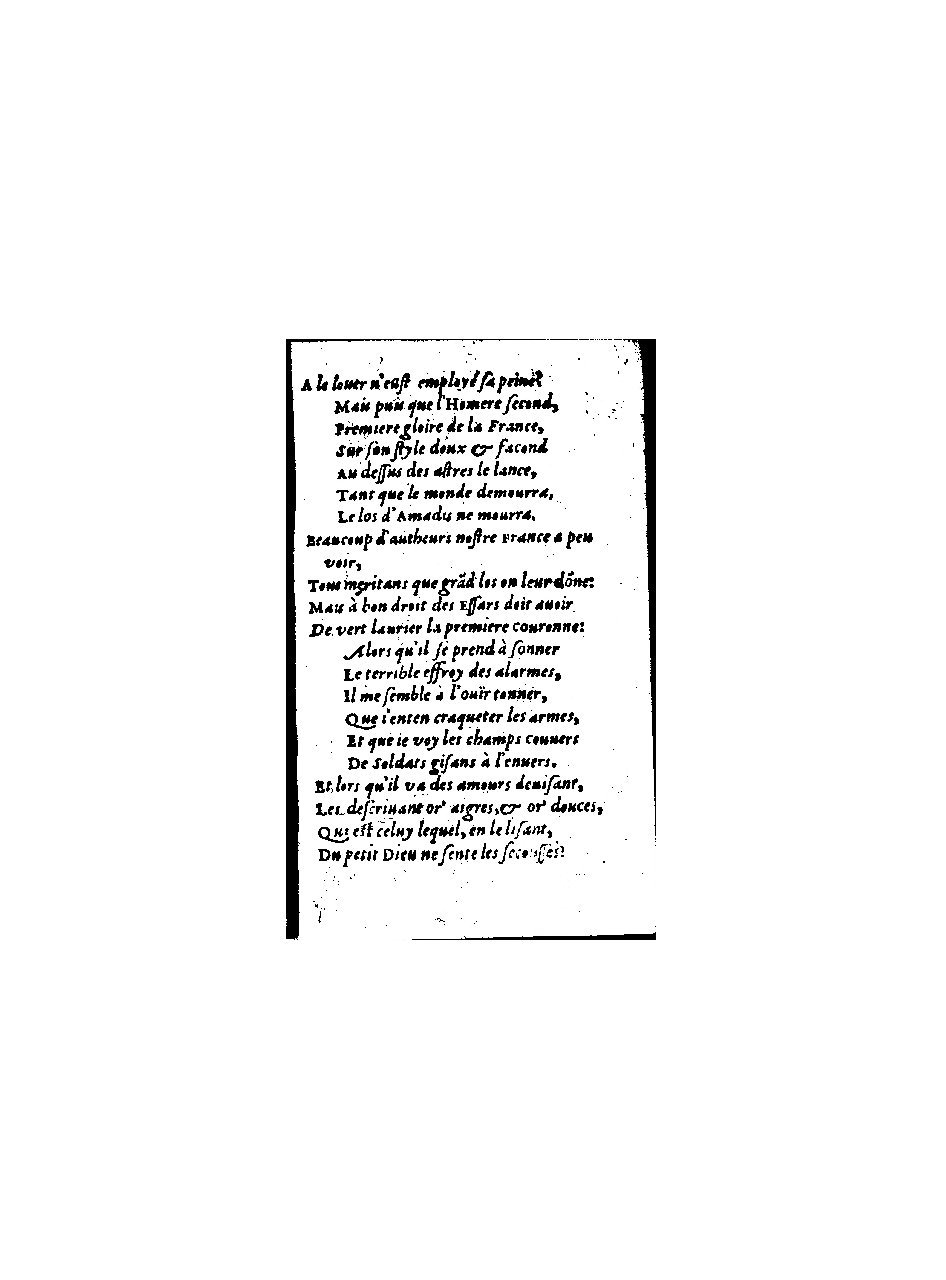 A le louer n'eust employé sa peine?
Mais puis que l'Homere second,
Premiere gloire de la France,
Sur son style doux & facond
Au dessus des astres le lance,
Tant que le monde demourra,
Le los d'Amadis ne mourra.
Beaucoup d'autheurs nostre France a peu
voir,
Tous meritans que grãd los on leur dõne:
Mais à bon droit des Essars doit auoir
De vert laurier la premiere couronne:
Alors qu'il se prend à sonner
Le terrible effroy des alarmes,
Il me semble à l'ouïr tonner,
Que i'enten craqueter les armes,
Et que ie voy les champs couuers
De Soldats gisans à l'enuers.
Et lors qu'il va des amours deuisant,
Les descriuant or' aigres, & or' douces,
Qui est celuy lequel, en le lisant,
Du petit Dieu ne sente les secousses?